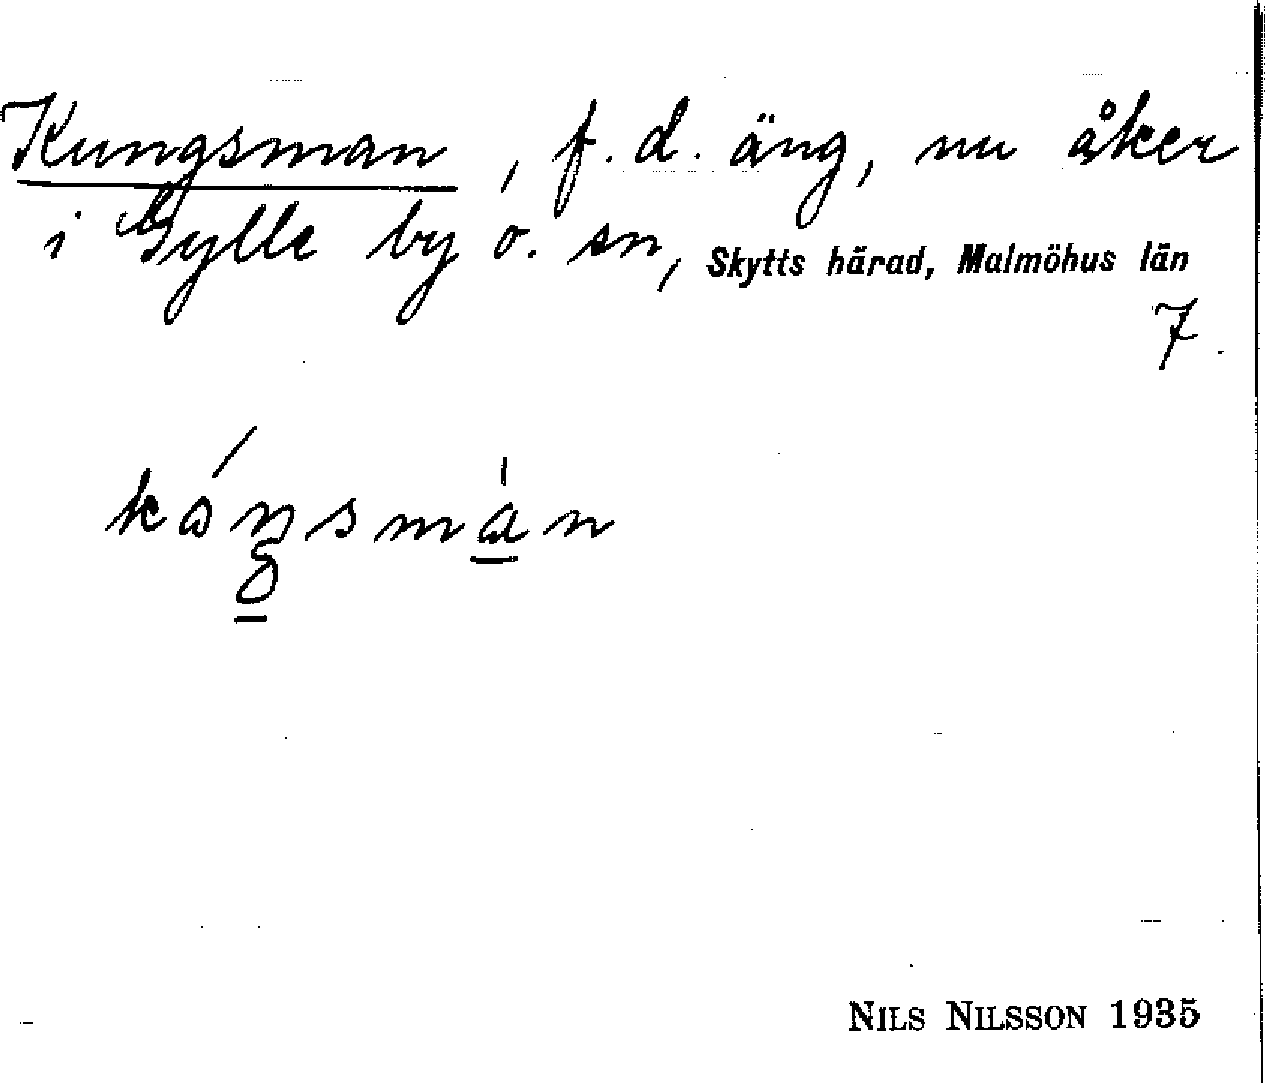 Kungsman, f.d. äng, nu åker
i Gylle by o. sn, Skytts härad, Malmöhus län
7.
NILS NILSSON 1935